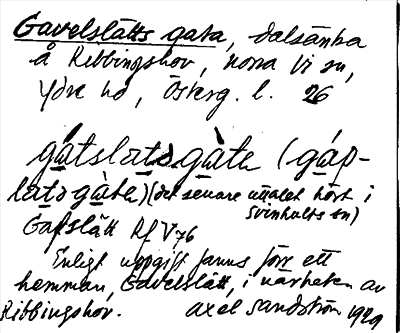 Gavelslätts gata, dalsänka
å Ribbingshov, norra Vi sn,
Ydre hd, Österg. l. 26
gátslatsgàte (gáp-
latsgàte) (det senare uttalet hört i
Svinhults sn)
Gafslätt Rf V 76
Enligt uppgift fanns förr ett
hemman, Gavelslätt, i närheten av
Ribbingshov. Axel Sandström 1929